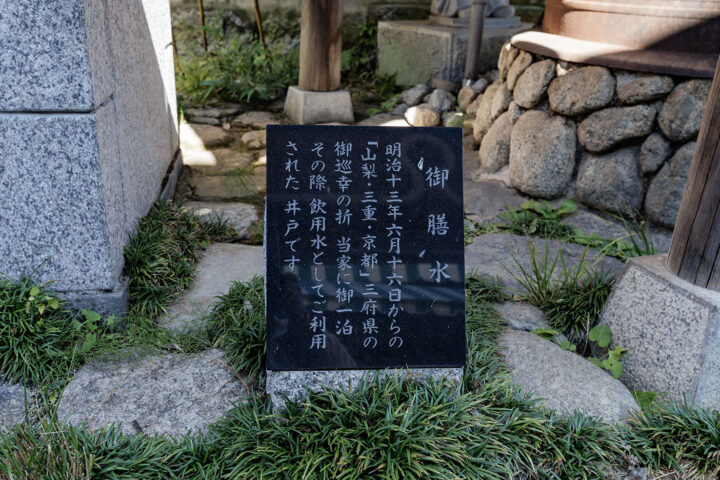 御膳水
明治十三年六月十六日からの
「山梨・三重・京都」三府県の
御巡幸の折 当家に御一泊
その際 飲用水としてご利用
された 井戸です